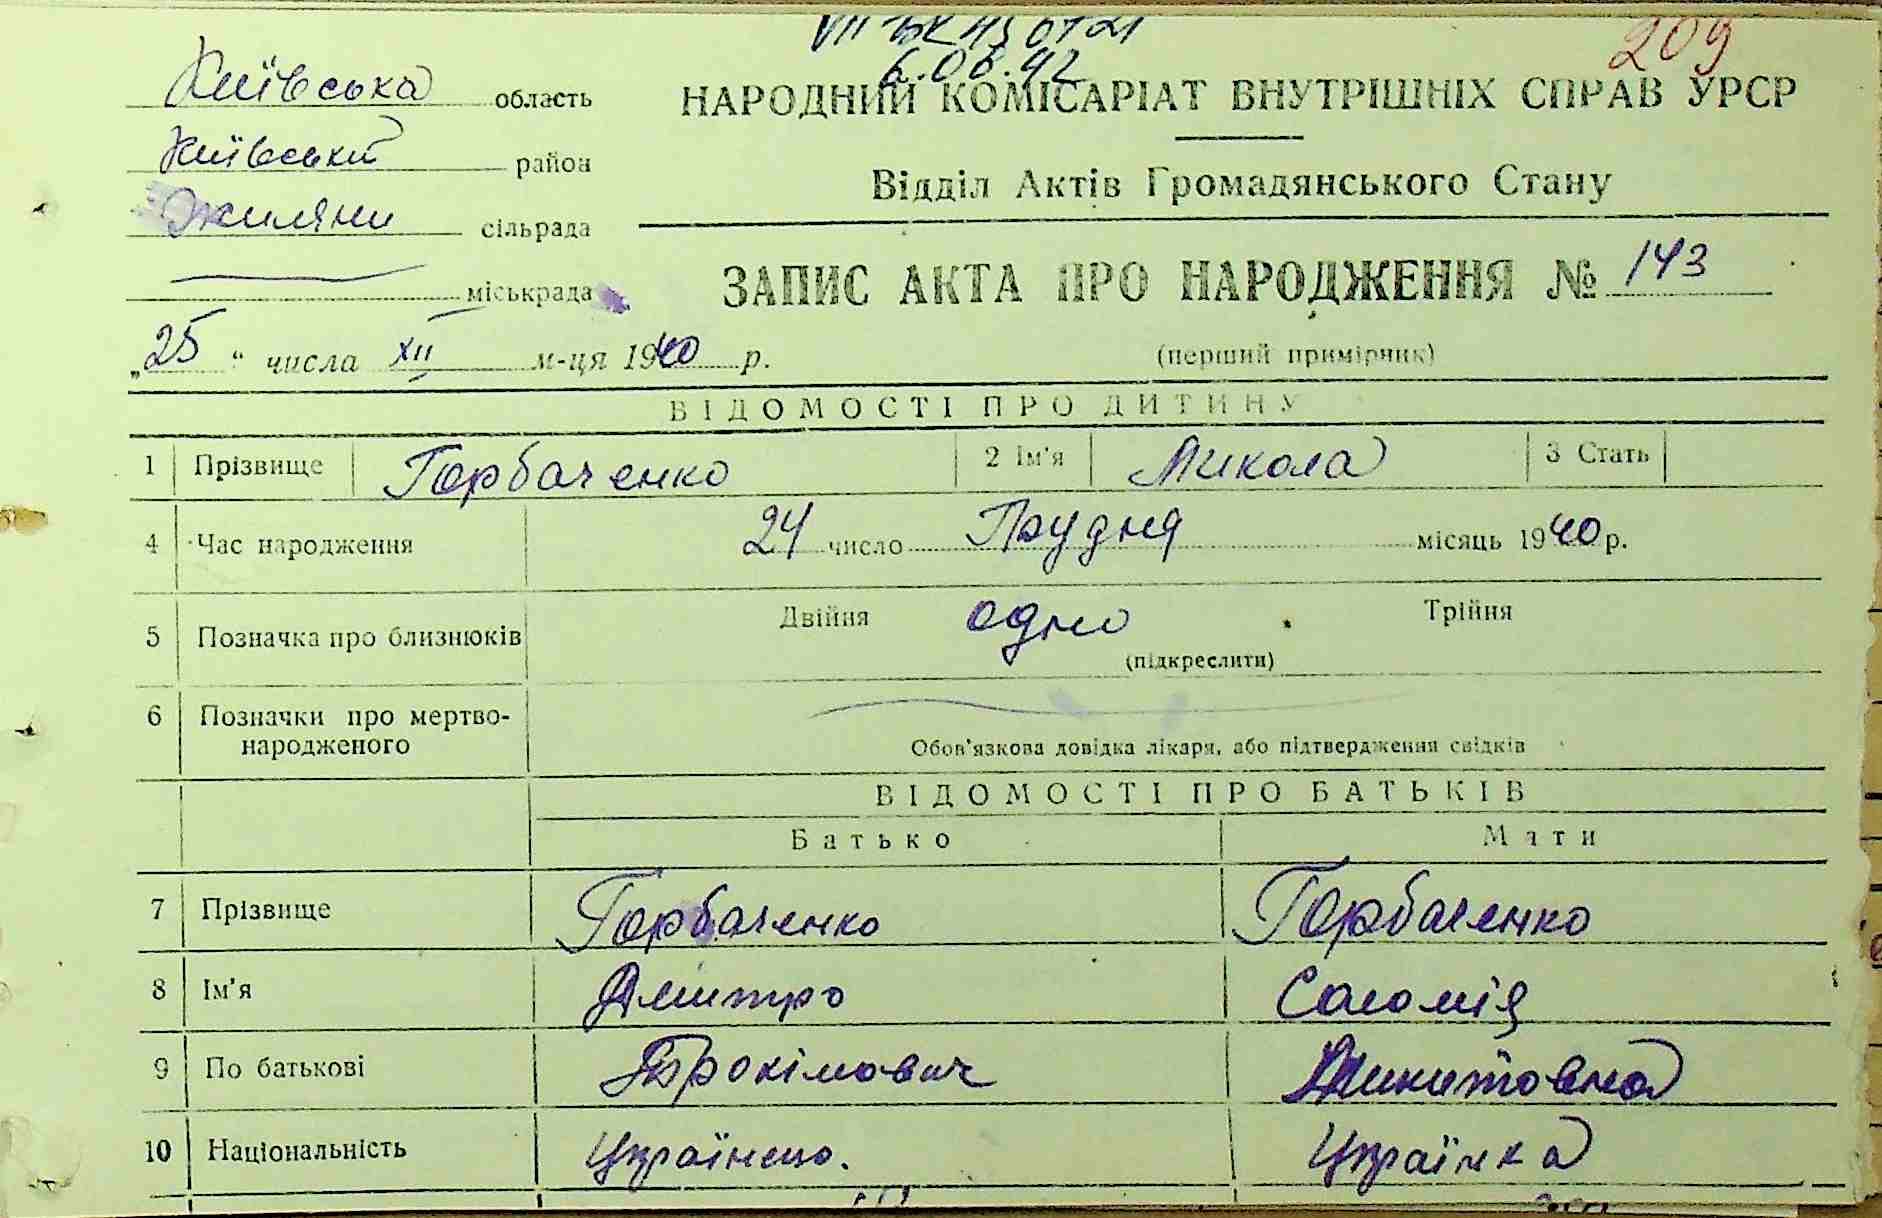 209
6.08.92
Київська область
НАРОДНИЙ КОМІСАРІАТ ВНУТРІШНІХ СПРАВ УРСР
Київський район
Відділ Актів Громадянського Стану
Жиляни сільрада
міськрада
ЗАПИС АКТА ПРО НАРОДЖЕННЯ № 143
„25 “ числа XII м-ця 1940 р.
(перший примірник)
ВІДОМОСТІ ПРО ДИТИНУ
1 Прізвище Горбаченко 2 Ім'я Микола 3 Стать
4 Час народження 24 число Грудня місяць 1940 р.
5 Позначка про близнюків Двійня одно Трійня
(підкреслити)
6 Позначки про мертво-
народженого
Обов'язкова довідка лікаря, або підтвердження свідків
ВІДОМОСТІ ПРО БАТЬКІВ
Батько Мати
7 Прізвище Горбаченко Горбаченко
8 Ім'я Дмитро Соломія
9 По батькові Трохімович Микитовна
10 Національність Українець. Українка